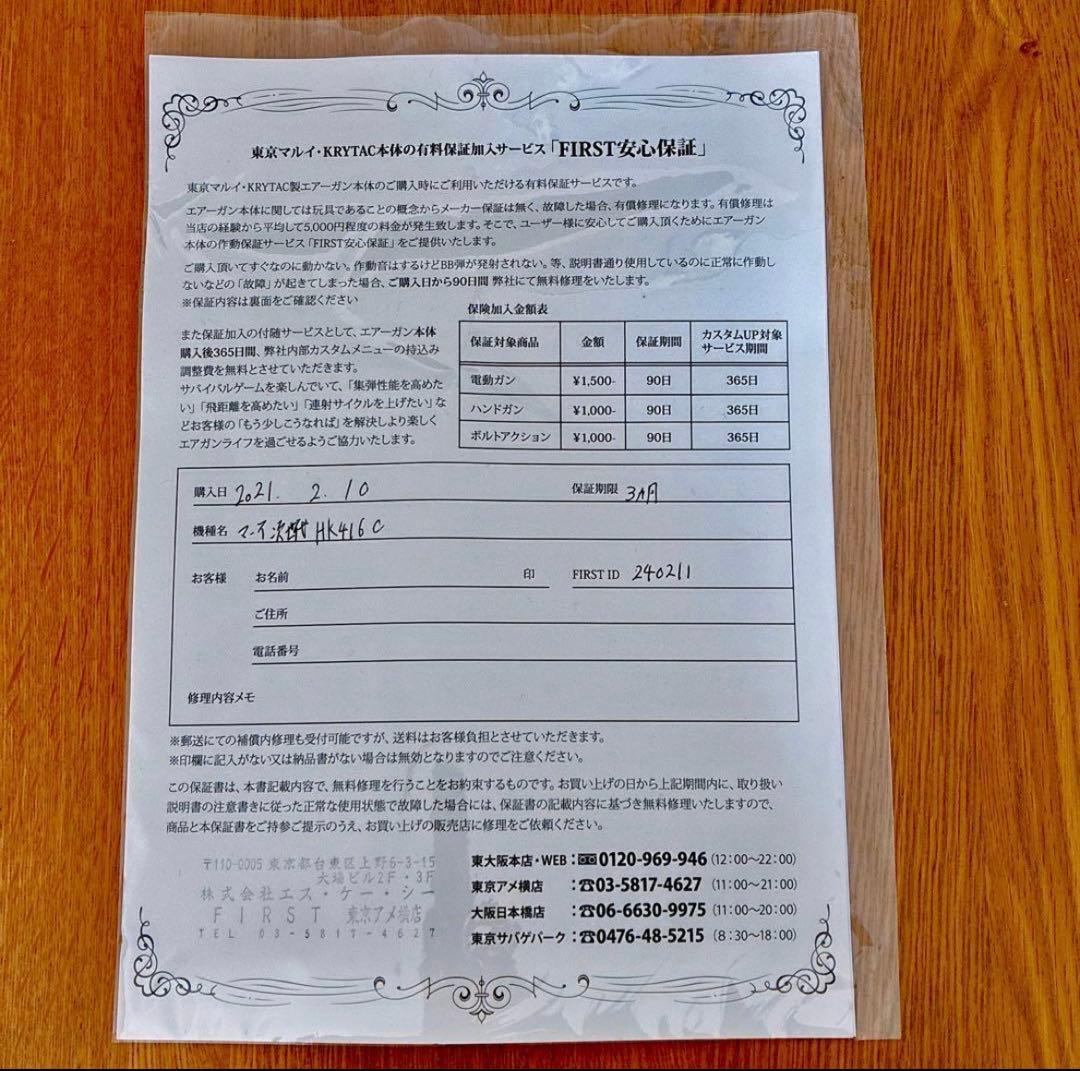 東京マルイ・KRYTAC本体の有料保証加入サービス「FIRST安心保証」
東京マルイ・KRYTAC製エアーガン本体のご購入時にご利用いただける有料保証サービスです。
エアーガン本体に関しては玩具であることの概念からメーカー保証は無く、故障した場合、有償修理になります。有償修理は
当店の経験から平均して5,000円程度の料金が発生致します。そこで、ユーザー様に安心してご購入頂くためにエアーガン
本体の作動保証サービス「FIRST安心保証」をご提供いたします。
ご購入頂いてすぐなのに動かない。作動音はするけどBB弾が発射されない。等、説明書通り使用しているのに正常に作動し
ないなどの「故障」が起きてしまった場合、ご購入日から90日間 弊社にて無料修理をいたします。
※保証内容は裏面をご確認ください
また保証加入の付随サービスとして、エアーガン本体
購入後365日間、弊社内部カスタムメニューの持込み
調整費を無料とさせていただきます。
サバイバルゲームを楽しんでいて、「集弾性能を高めた
い」「飛距離を高めたい」「連射サイクルを上げたい」な
どお客様の「もう少しこうなれば」を解決しより楽しく
エアガンライフを過ごせるようご協力いたします。
保険加入金額表
保証対象商品 金額 保証期間 カスタムUP対象
サービス期間
電動ガン ¥1,500- 90日 365日
ハンドガン ¥1,000- 90日 365日
ボルトアクション ¥1,000- 90日 365日
購入日 2021. 2. 10 保証期限 3ヵ月
機種名 HK416C
お客様 お名前 印 FIRST ID 240211
ご住所
電話番号
修理内容メモ
※郵送にての補償内修理も受付可能ですが、送料はお客様負担とさせていただきます。
※印欄に記入がない又は納品書がない場合は無効となりますのでご注意ください。
この保証書は、本書記載内容で、無料修理を行うことをお約束するものです。お買い上げの日から上記期間内に、取り扱い
説明書の注意書きに従った正常な使用状態で故障した場合には、保証書の記載内容に基づき無料修理いたしますので、
商品と本保証書をご持参ご提示のうえ、お買い上げの販売店に修理をご依頼ください。
〒110-0005 東京都台東区上野6-3-15
大場ビル2F・3F
株式会社エス・ケー・シー
FIRST 東京アメ横店
TEL 03-5817-4627
東大阪本店・WEB：0120-969-946 (12:00〜22:00)
東京アメ横店 ：☎03-5817-4627 (11:00〜21:00)
大阪日本橋店 ：☎06-6630-9975 (11:00〜20:00)
東京サバゲパーク：☎0476-48-5215 (8:30〜18:00)